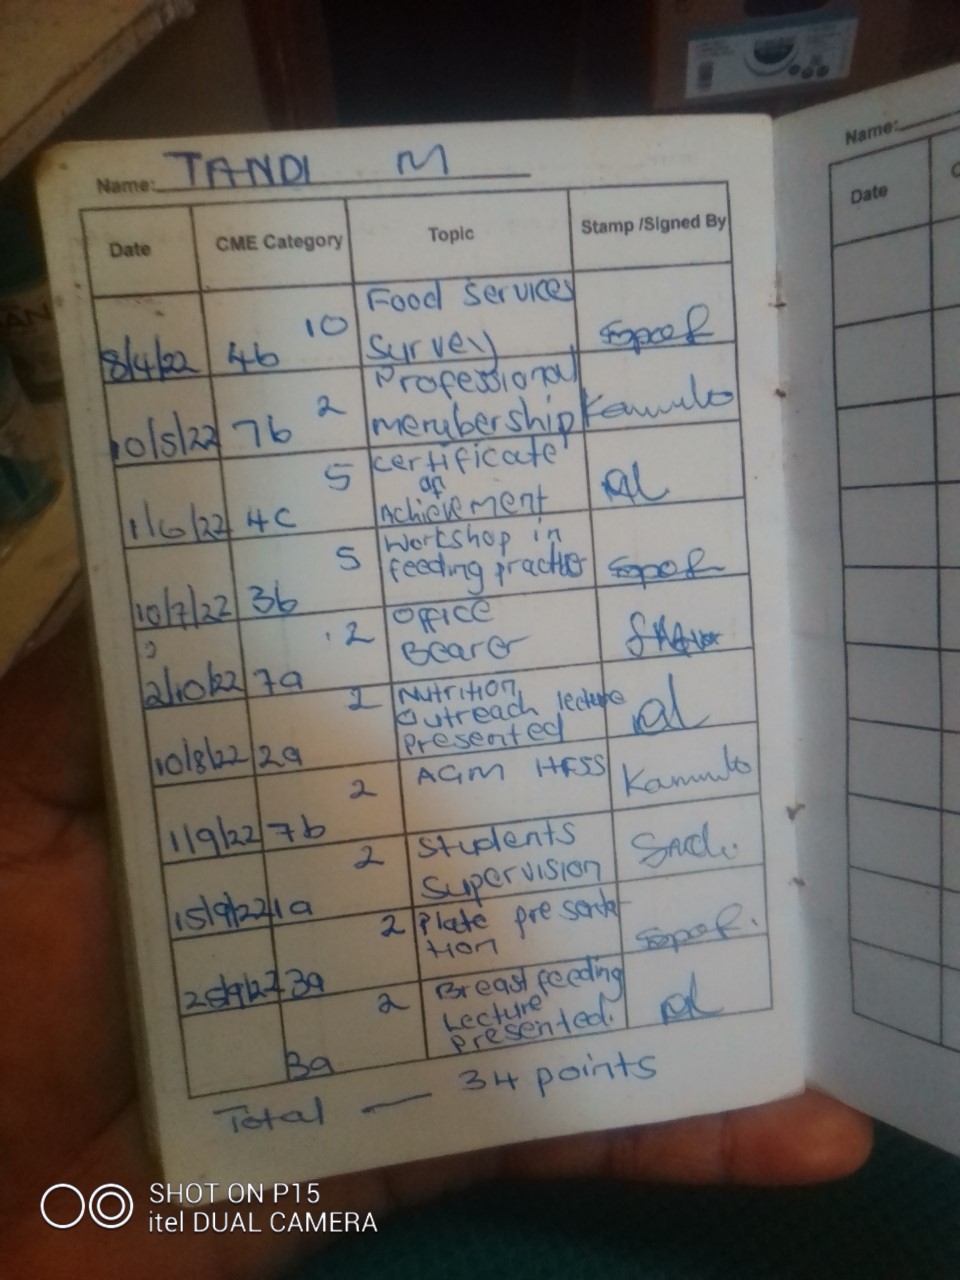 Name: TANDI M
Date CME Category Topic Stamp /Signed By
8/4/22 4b 10 Food Services
Survey
10/5/22 7b 2 Professional
membership Kamulo
1/6/22 4c 5 certificate
of
Achievement
10/7/22 3b 5 Workshop in
feeding practice
2/10/22 7a 2 Office
Bearer
10/8/22 2a 2 Nutrition
outreach lecture
presented
1/9/22 7b 2 AGM HFSS
15/9/22 1a 2 Students
Supervision
3a 2 Plate presenta-
tion
3a 2 Breastfeeding
Lecture
presented.
Total — 34 points
Name:
Date
SHOT ON P15
itel DUAL CAMERA